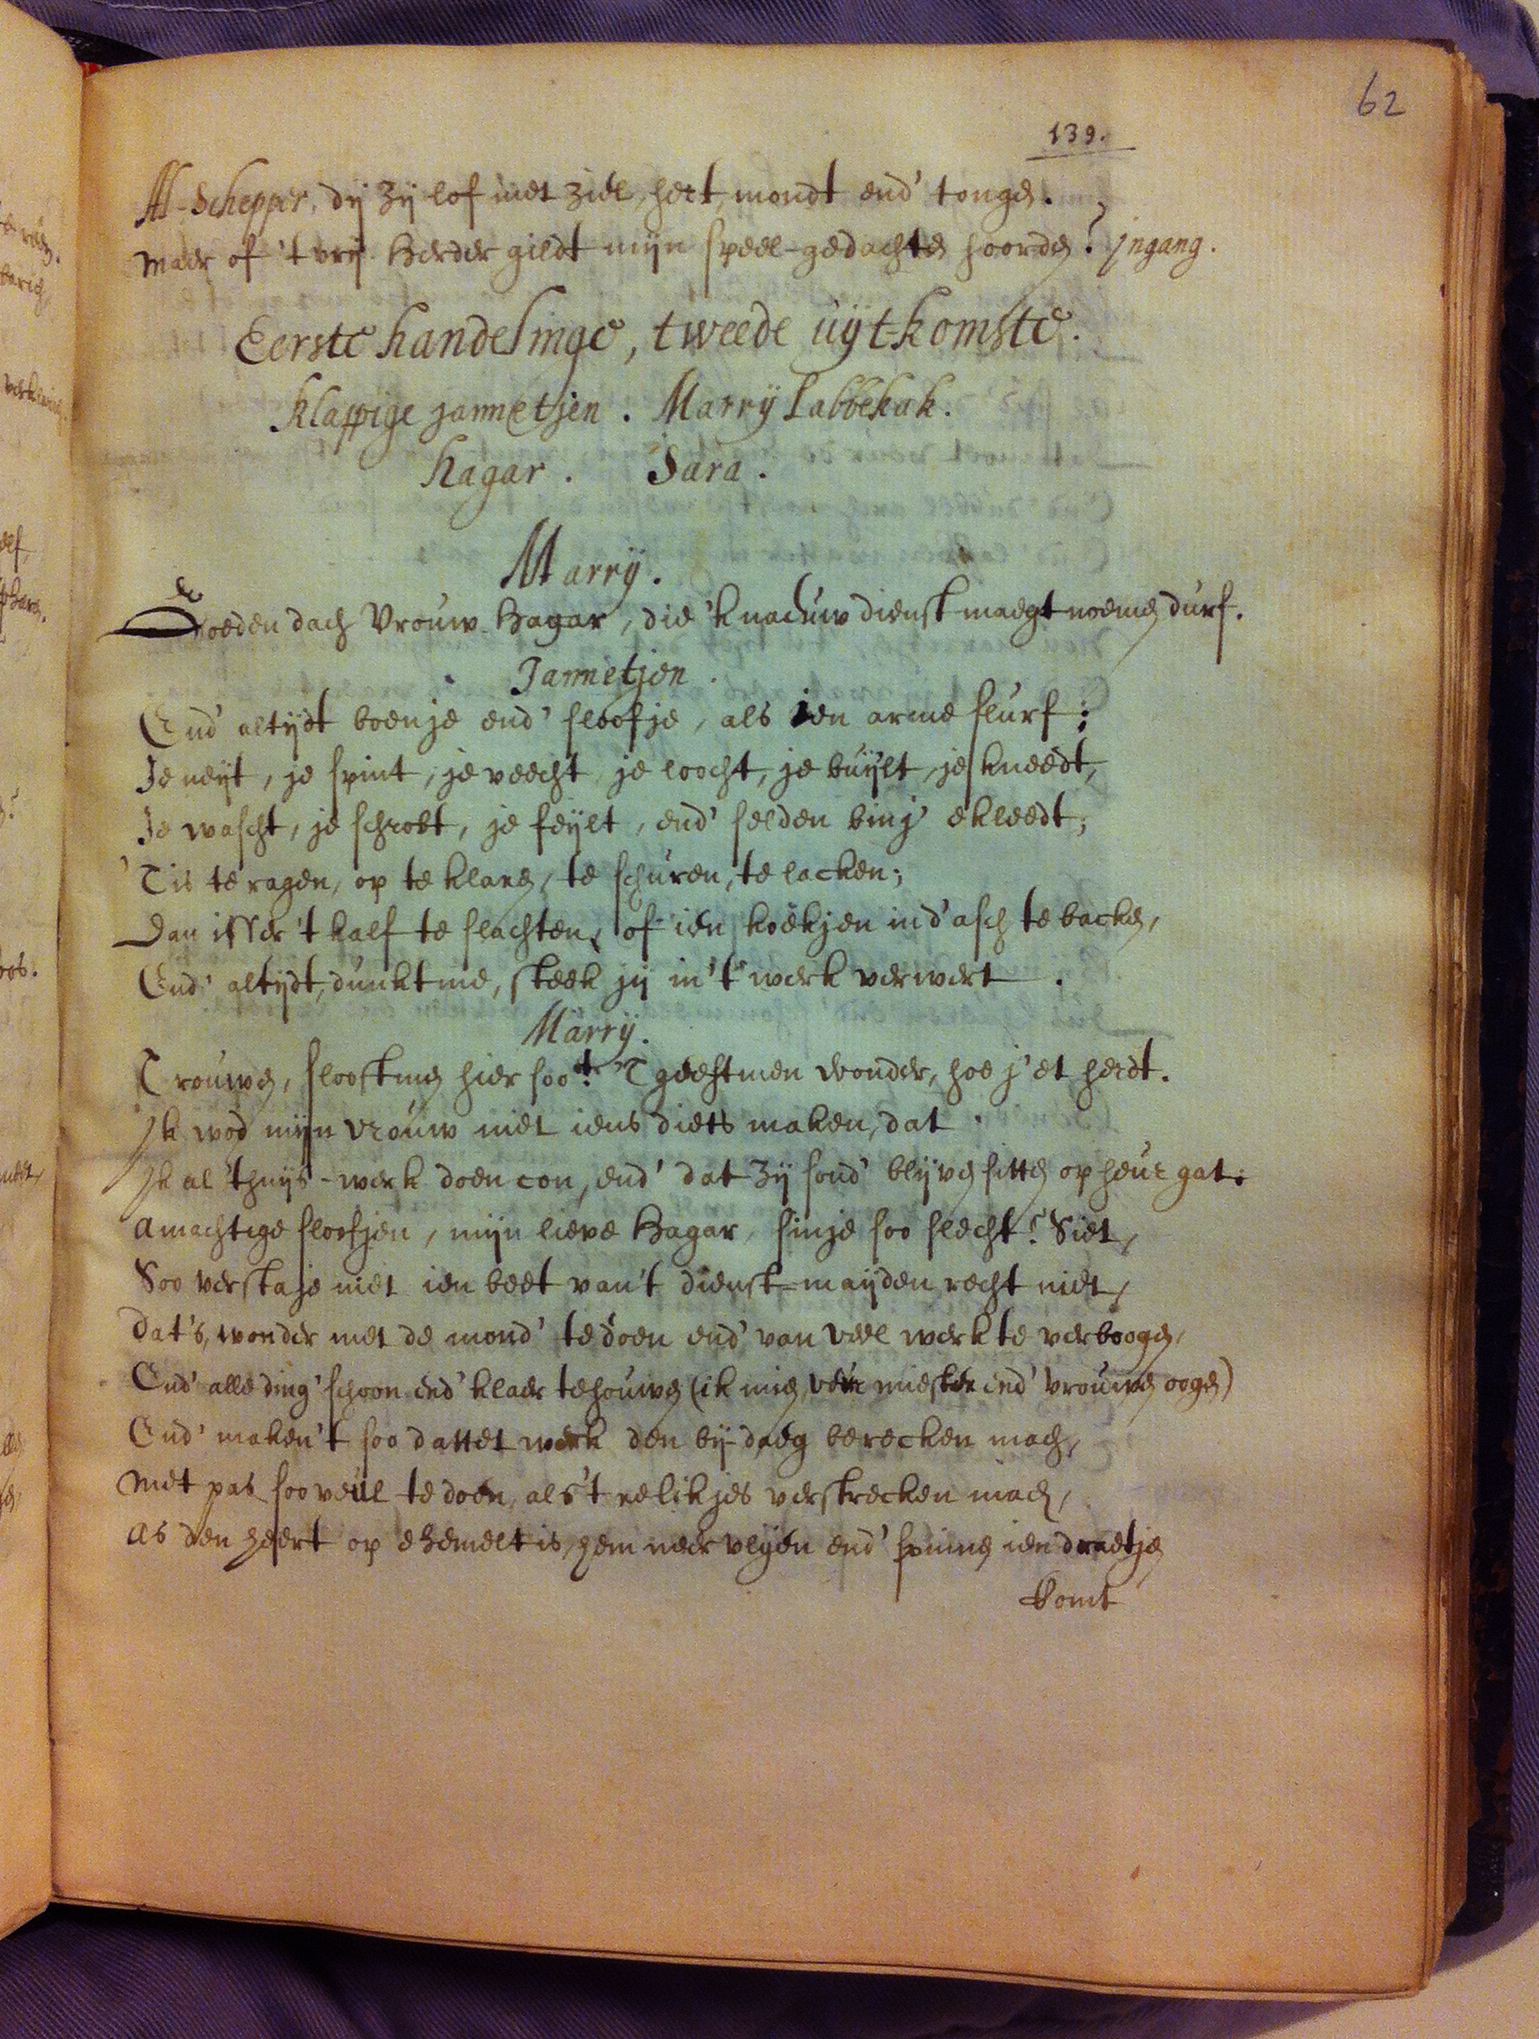 62
139.
Al-Schepper, dij zij lof met ziel, hert, mondt end' tongen.
Maer of 't vrij Herder gildt mijn speel-gedachten hoorden? Ingang.
Eerste handelinge, tweede uijtkomste.
Klappige jannetjen. Marrij Labbekak.
Hagar. Sara.
Marrij.
Goeden dach Vrouw Hagar, die 'k naeuw dienstmaegt noemen durf.
Jannetjen.
End' altijdt boenje end' sloofje, als ien arme slurf;
Je neijt, je spint, je veecht, je loocht, je buijlt, je kneedt,
Je wascht, je schrobt, je feijlt, end' selden binj' ekleedt;
'Tis te ragen, op te klaren, te schuren, te lacken;
Dan isser 't kalf te slachten, of ien koekjen in d'asch te backen,
End' altijdt, dunkt me, steek jij in 't werk verwert.
Marrij.
Trouwen, slooft men hier soo? 'T geeft men wonder, hoe j'et herdt.
Ik wod mijn vrouw niet iens diets maken, dat
Ik al 't huijs-werk doen con, end' dat zij sond' blijven sitten op heur gat.
Amachtige sloofjen, mijn lieve Hagar, sinje soo slecht? Siet,
Soo verstaje niet ien beet van't dienst-maijden recht niet,
Dat's, wonder met de mond' te doen end' van veel werk te verboogen,
End' alle ding' schoon end' klaer te houwen (ik mien, veur miester end' vrouwen oogen)
End' maken't soo dattet werk den bij-daeg berecken mach,
Met pas soo veul te doen, als't relikjes verstrecken mach,
As den heert op ehemelt is, hem neer vlijen end' spinnen ien draetjen
komt